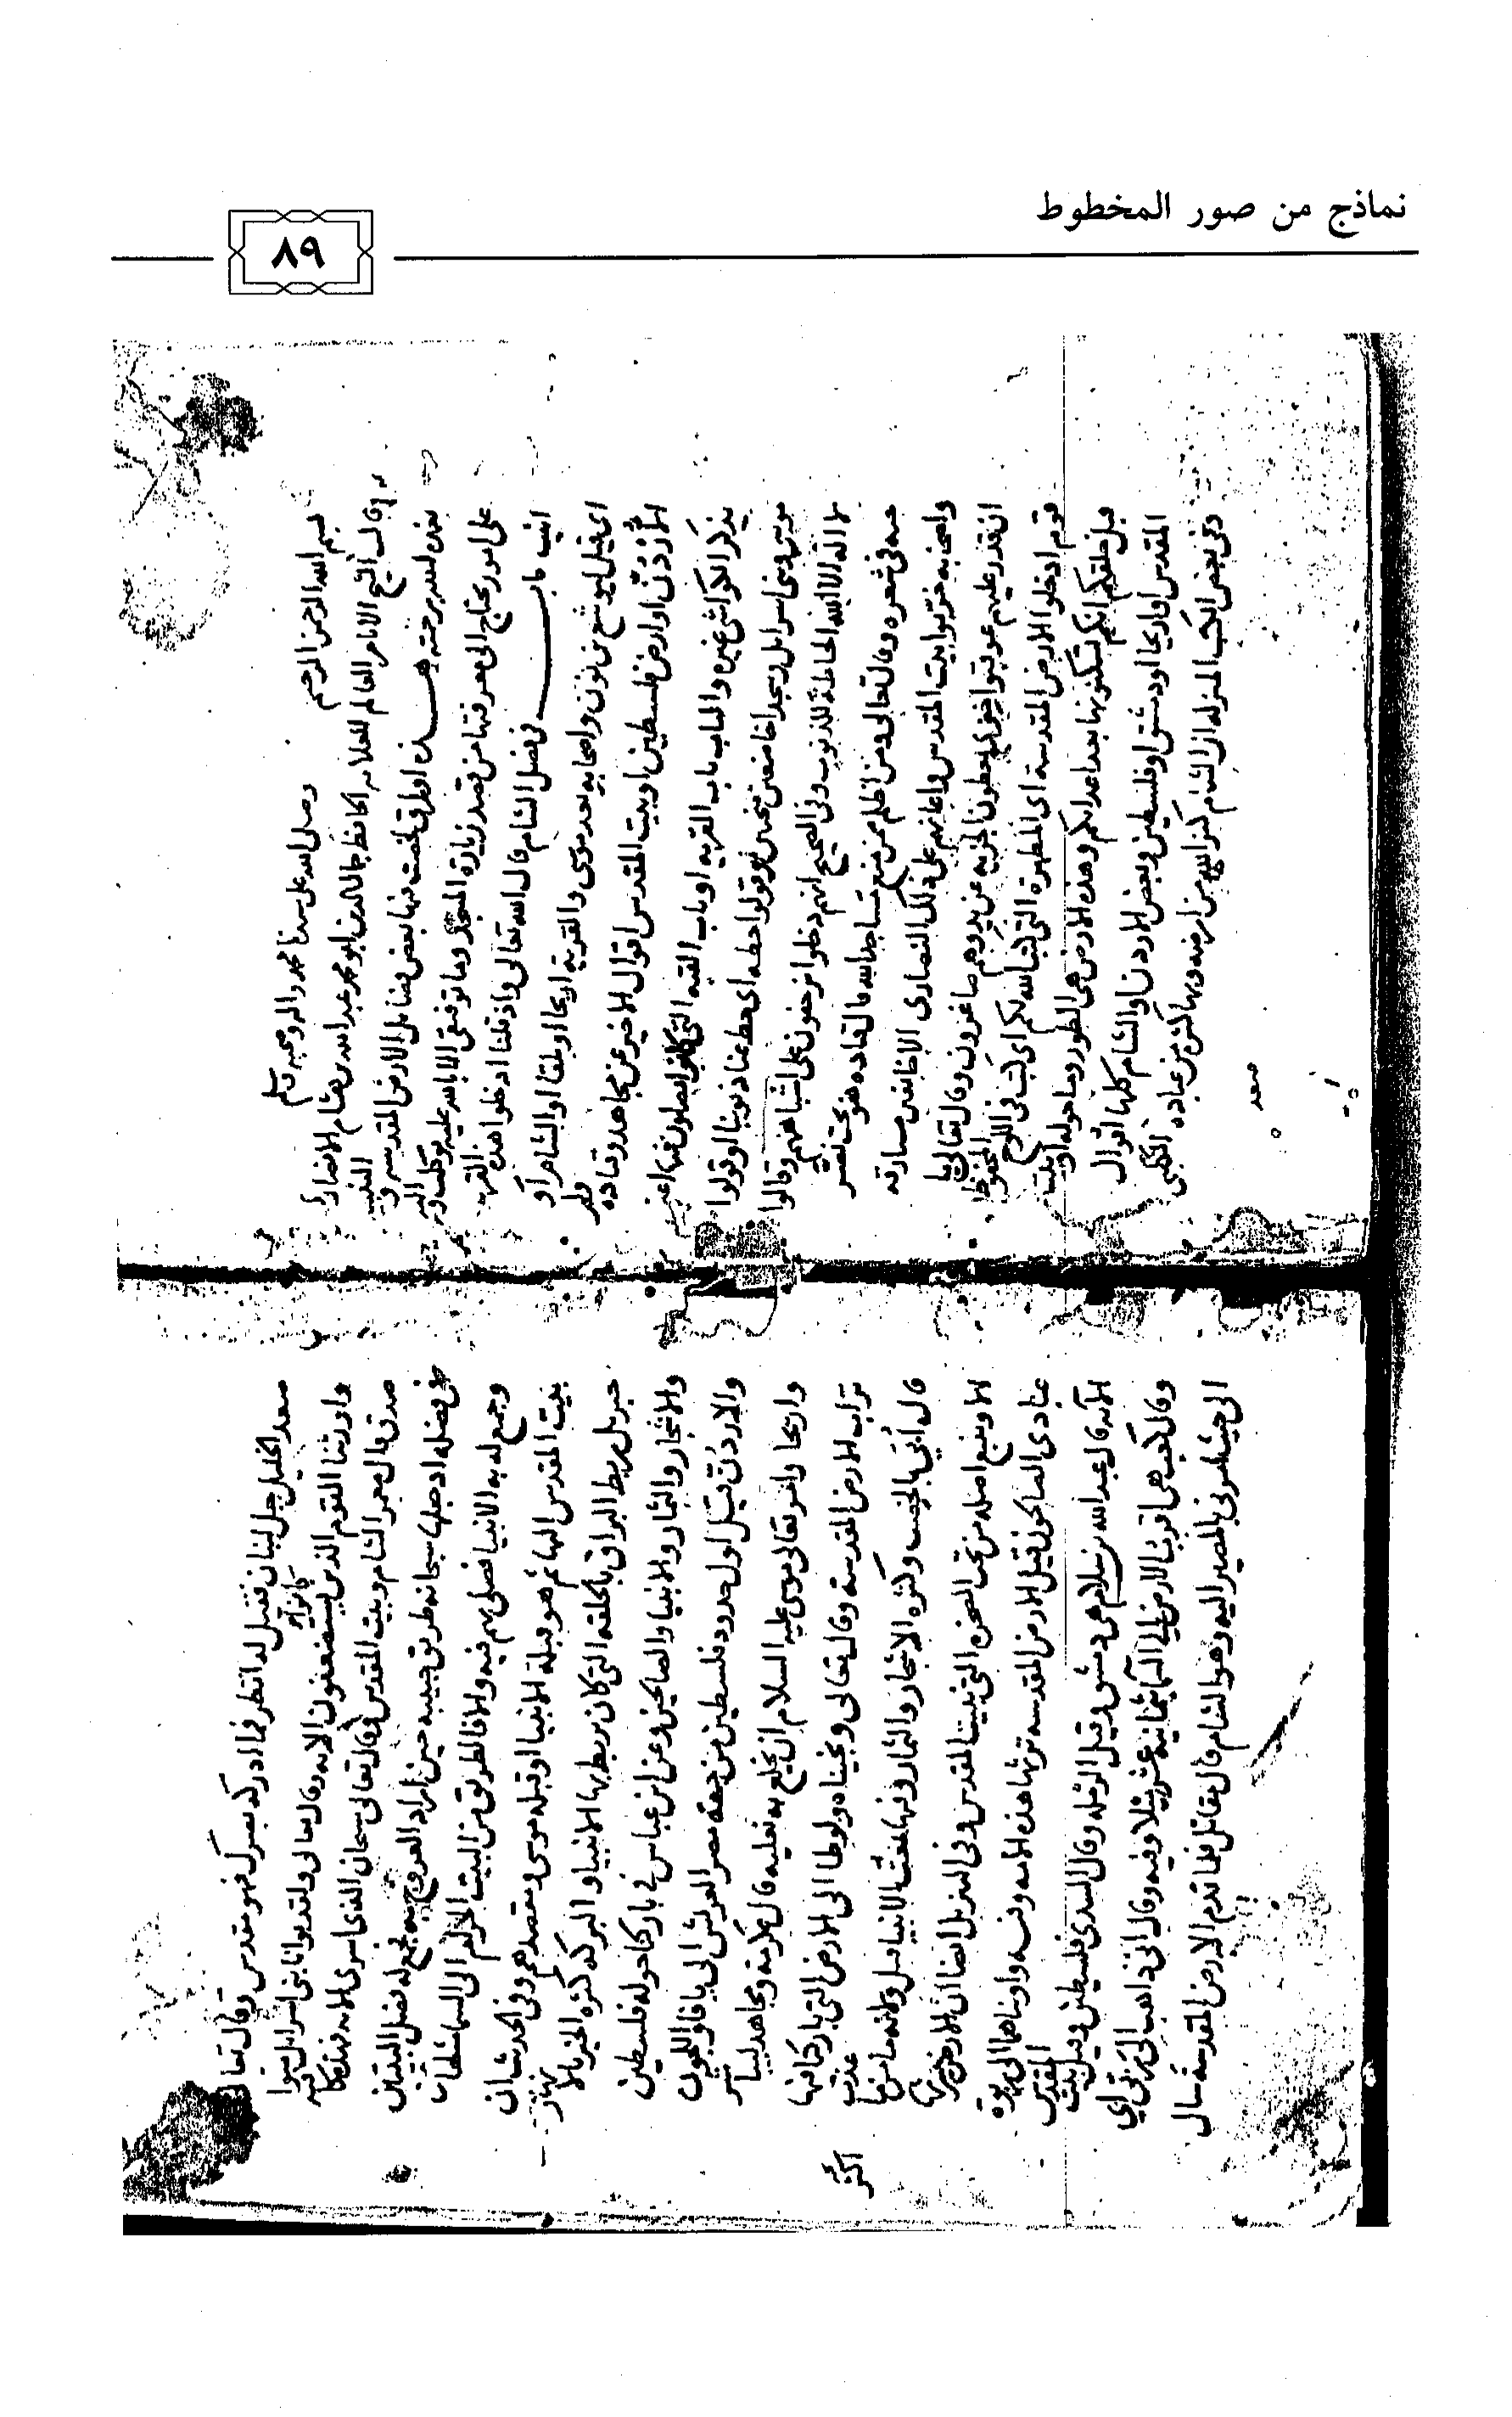 نماذج من صور المخطوط
٨٩
بسم الله الرحمن الرحيم وصلى الله على سيدنا محمد واله وصحبه وسلم
قال الشيخ الامام العالم العلامه الحافظ جمال الدين ابو محمد عبد الله بن هشام الانصاري
تغمده الله برحمته هذه اوراق لخصت فيها بعض فضائل الارض المقدسه
على امور يحتاج الى معرفتها من قصد زيارة المسجد وما توفيقي الا بالله عليه توكلت واليه
انيب باب في فضل الشام قال الله تعالى واذ قلنا ادخلوا هذه القريه
اى قيل ليوشع بن نون واصحابه بعد موسى والقرية اريحا او بلقا او الشام او
الأردن او ارض فلسطين او بيت المقدس اقوال الاخير عن مجاهد وقتاده
يذكر الكواشى غيره والباب باب القريه او باب القبه التي كانوا يصلون
موسى وبنى اسرائيل وسجدا خاضعين وقولوا حطه اى حط عنا ذنوبنا او قولوا
لا اله الا الله الحاطة للذنوب وفى الصحيح انهم دخلوا يزحفون على استاههم وقالوا
حبه فى شعره وقال تعالى ومن اظلم ممن منع مساجد الله قال قتاده هو بخت نصر
واصحابه خربوا بيت المقدس واعانهم على ذلك النصارى الا خائفين مسارقه
ان قدر عليهم عوقبوا
قوم ادخلوا الارض المقدسة اى المطهرة التي كتب الله لكم اى كتب فى اللوح المحفوظ
قبل خلقكم انكم تسكنونها بعد اعدائكم وهذه الارض هى الطور وما حوله او بيت
المقدس او اريحا او دمشق او فلسطين وبعض الاردن او الشام كلها اقوال
وفى بعض الكتب المنزله ان الشام كنز الله من ارضه وبها كنز من عباده الكلبى
صعد
صعد الخليل جبل لبنان فقيل له انظر فما ادركه بصرك فهو مقدس وقال تعالى
واورثنا القوم الذين كانوا يستضعفون الايه وقال تعالى ولقد بوأنا بنى اسرائيل مبوا
صدق قال معمر الشام وبيت المقدس وقال تعالى سبحان الذى اسرى الايه
فضله ان جعلها سبحانه طريق حبيبه حين اراد العروج به فجمع له فضل البيتين
وجمع له به الانبيا فصلى بهم فيه والا فالطريق من البيت الحرام الى السما
بيت المقدس انما هو قبلة الانبيا او قبله موسى ومقصدهم وفى الحديث ان
جبريل ربط البراق بالحلقه التي كان يربط بها الانبيا والبركه كثره الخير بالانهار
والاشجار والثمار والانبيا والصالحين وعن ابن عباس فى باركنا حوله فلسطين
والأردن قيل اول حدود فلسطين من جهة مصر العريش الى يافا واللجون
واريحا وامر تعالى موسى عليه السلام ان يخلع به نعليه قال عكرمه ومجاهد ليباشر
تراب الارض المقدسة وقال تعالى ونجيناه ولوطا الى الارض التي باركنا فيها
قال أبي بالخصب وكثره الاشجار والثمار وفيها بعث الانبيا قيل وما من ماء عذب
الا وينبع اصله من تحت الصخره التي ببيت المقدس وفى التنزيل ايضا ان الارض يرثها
عبادى الصالحون قيل الارض المقدسه ترثها هذه الامه وفيه واويناهما الى ربوة
الآيه قال عبد الله بن سلام هى دمشق وقيل الرملة وقال السدى فلسطين وقيل بيت المقدس
وقال كعب هى اقرب الارض الى السما بثمانيه عشر ميلا وفيه وقال انى ذاهب الى ربى اي
الى حيث امرنى بالمصير اليه وهو الشام قال مقاتل فلما قدم الارض المقدسة سال
اكثر